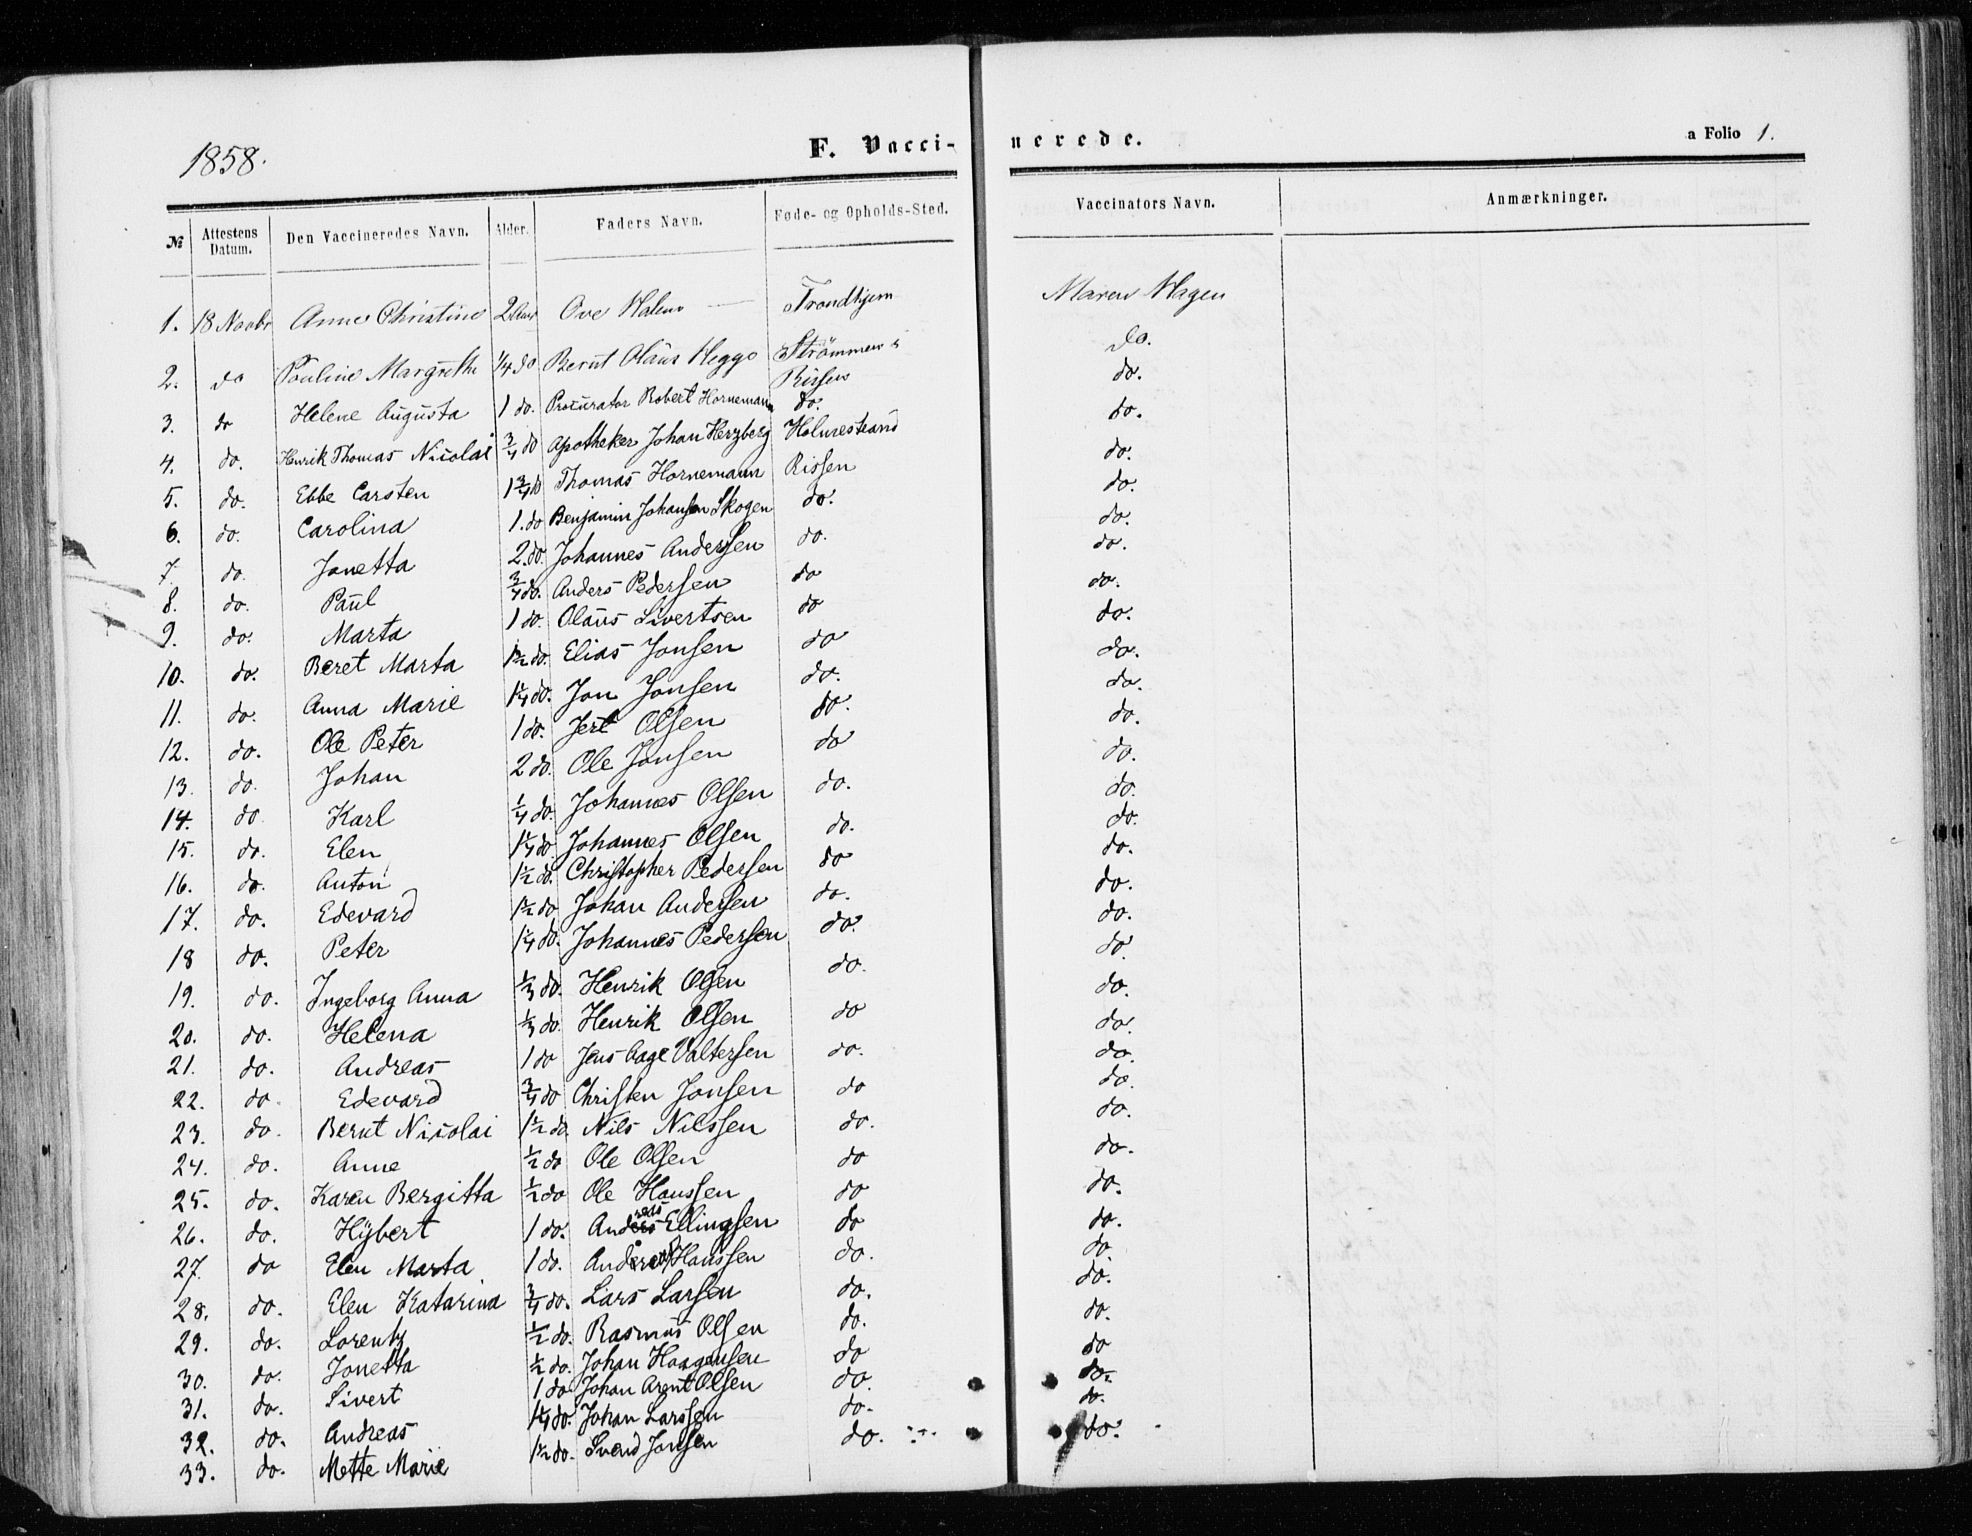 1858. F. Vacci- nerede. a Folio 1.
№ Attestens Datum. Den Vaccineredes Navn. Alder. Faders Navn. Føde- og Opholds-Sted. Vaccinators Navn. Anmærkninger.
1. 18 Novbr Anne Christine 2 Aar Ove Trondhjem Maren Hagen
2. do Pauline Margrethe 1/4 do Bernt Olaus Heggo Strömmen Rissen do.
3. do Helene Augusta 1 do. Procurator Robert Hornemann do. do.
4. do. Henrik Thomas Nicolai 3/4 do Apotheker Johan Herzberg Holmestrand do.
5. do. Ebbe Carsten 1 3/4 do Thomas Hornemann Rissen do.
6. do. Carolina 1. do Benjamin Johansen Skogen do. do.
7. do. Jonetta 2. do. Johannes Andersen do. do.
8. do. Paul 3/4 do. Anders Pedersen do do.
9. do. Marta 1 do. Olaus Sivertsen do do.
10. do. Beret Marta 1 1/2 do. Elias Jonsen do do.
11. do. Anna Marie 1 1/4 do. Jon Jonsen do. do.
12. do. Ole Peter 1 do. Jert Olsen do. do.
13. do. Johan 2 do. Ole Jonsen do do.
14. do Karl 1/4 do. Johannes Olsen do. do.
15. do. Elen 1 1/4 do Johannes Olsen do. do.
16. do. Anton 1 1/2 do. Christopher Pedersen do do.
17. do. Edevard 1 1/2 do Johan Andersen do. do.
18 do. Peter 1 1/4 do. Johannes Pedersen do. do.
19. do. Ingeborg Anna 1/3 do. Henrik Olsen do. do.
20. do. Helena 1/3 do. Henrik Olsen do do.
21. do. Andreas 1 do Jens Aage Valtersen do. do.
22. do. Edevard 3/4 do Christen Jonsen do do.
23. do. Bernt Nicolai 1 1/2 do. Nils Nilssen do. do.
24. do. Anne 1/2 do Ole Olsen do do.
25. do. Karen Bergitta 1/2 do Ole Hanssen do do.
26. do. Hÿbert 1 do. Andreas Ellingsen do do.
27. do Elen Marta 1 do. Andreas Hanssen do. do.
28. do. Elen Katarina 3/4 do. Lars Larsen do. do.
29. do. Lorentz 1/2 do. Rasmus Olsen do. do.
30. do. Jonetta 1/2 do. Johan Haagensen do do
31. do. Sivert 1 do Johan Arent Olsen do. do.
32. do. Andreas 1 1/4 do. Johan Larssen do. do.
33. do. Mette Marie 1 1/2 do. Svend Jonsen do. do.